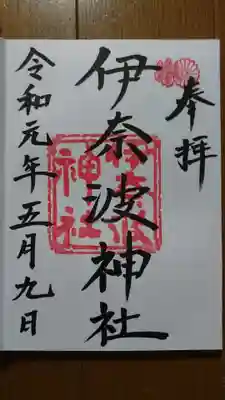 奉拝
伊奈波神社
令和元年五月九日